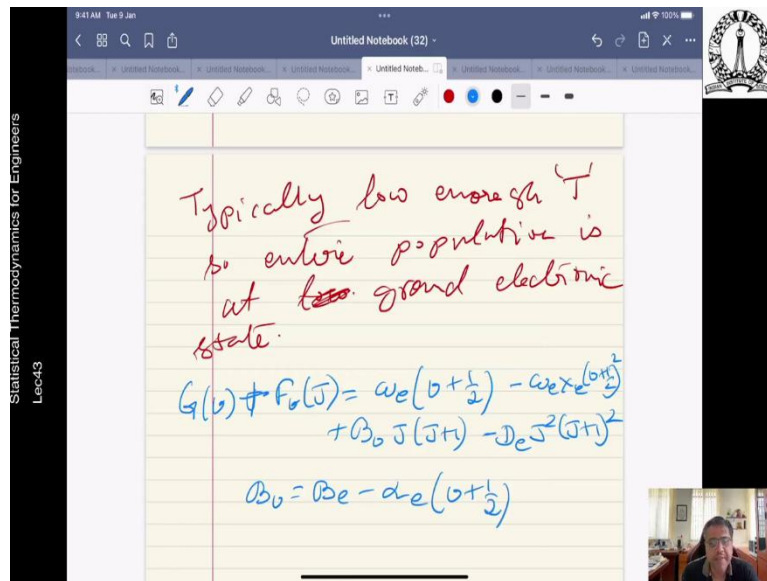 9:41 AM Tue 9 Jan
100%
Untitled Notebook (32)
Untitled Notebook...
Untitled Notebook...
Untitled Notebook...
Untitled Noteb...
Untitled Notebook...
Untitled Notebook...
Untitled Notebook...
Statistical Thermodynamics for Engineers
Lec43
Typically low enough T
so entire population is
at ground electronic
state.
G(υ) + Fυ(J) = ωe(υ+1/2) - ωexe(υ+1/2)²
+ Bυ J(J+1) - De J²(J+1)²
Bυ = Be - αe(υ+1/2)